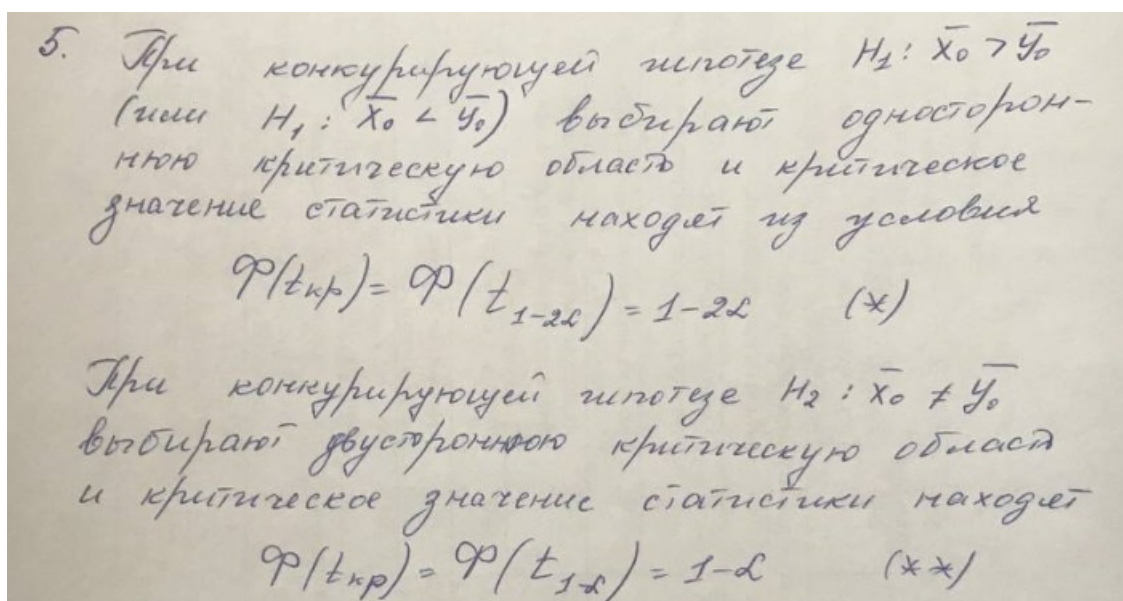 5. При конкурирующей гипотезе H₁: X̄₀ > Ȳ₀
(или H₁: X̄₀ < Ȳ₀) выбирают односторон-
нюю критическую область и критическое
значение статистики находят из условия
Φ(tкр) = Φ(t₁₋₂α) = 1-2α (*)
При конкурирующей гипотезе H₂: X̄₀ ≠ Ȳ₀
выбирают двустороннюю критическую область
и критическое значение статистики находят
Φ(tкр) = Φ(t₁₋α) = 1-α (**)